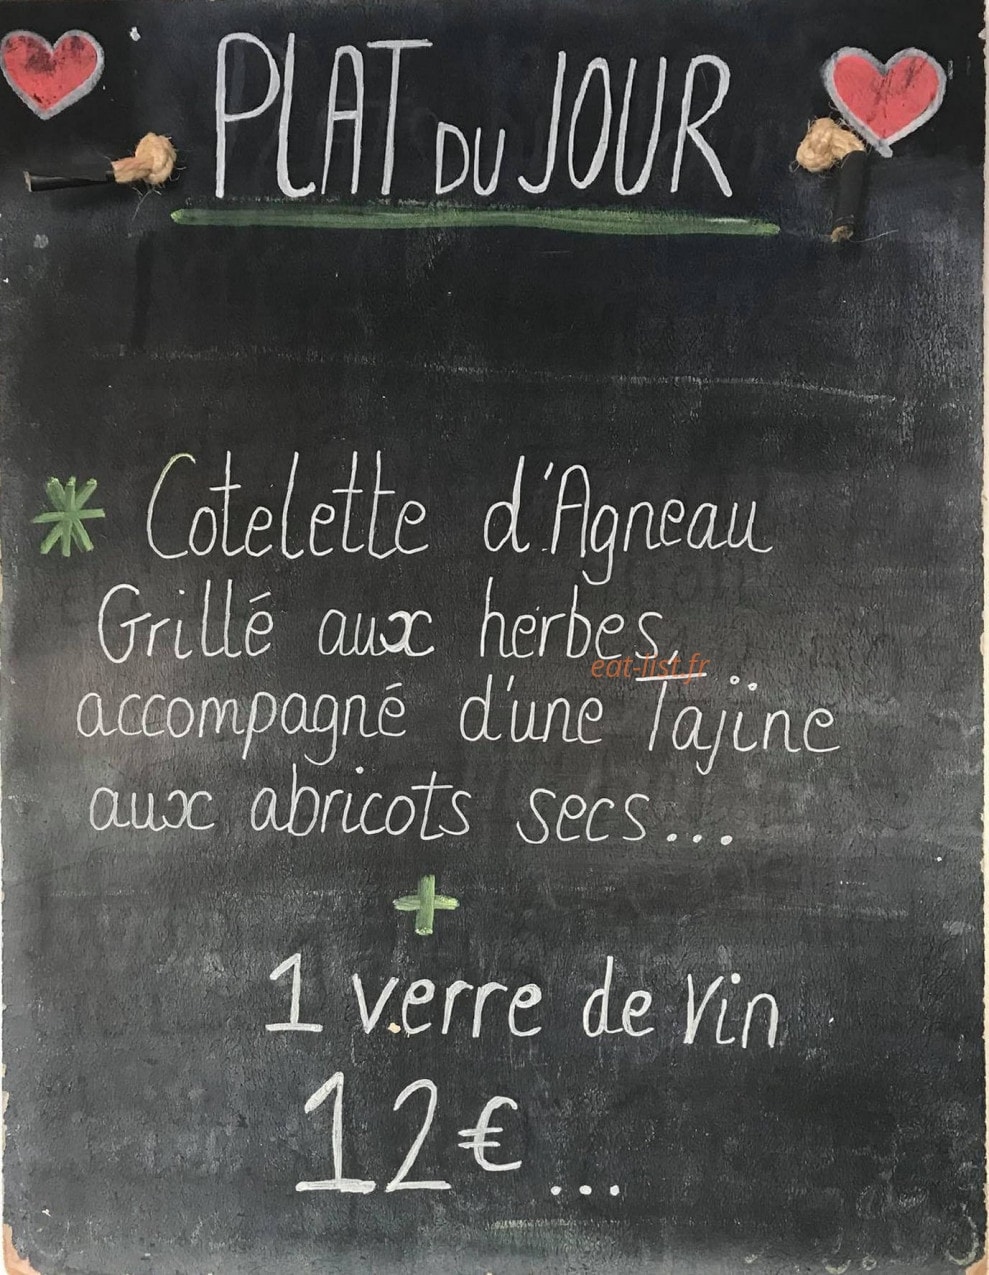 PLAT DU JOUR
Cotelette d'Agneau
Grillé aux herbes,
eat-list.fr
accompagné d'une Tajine
aux abricots secs...
+
1 verre de Vin
12€...